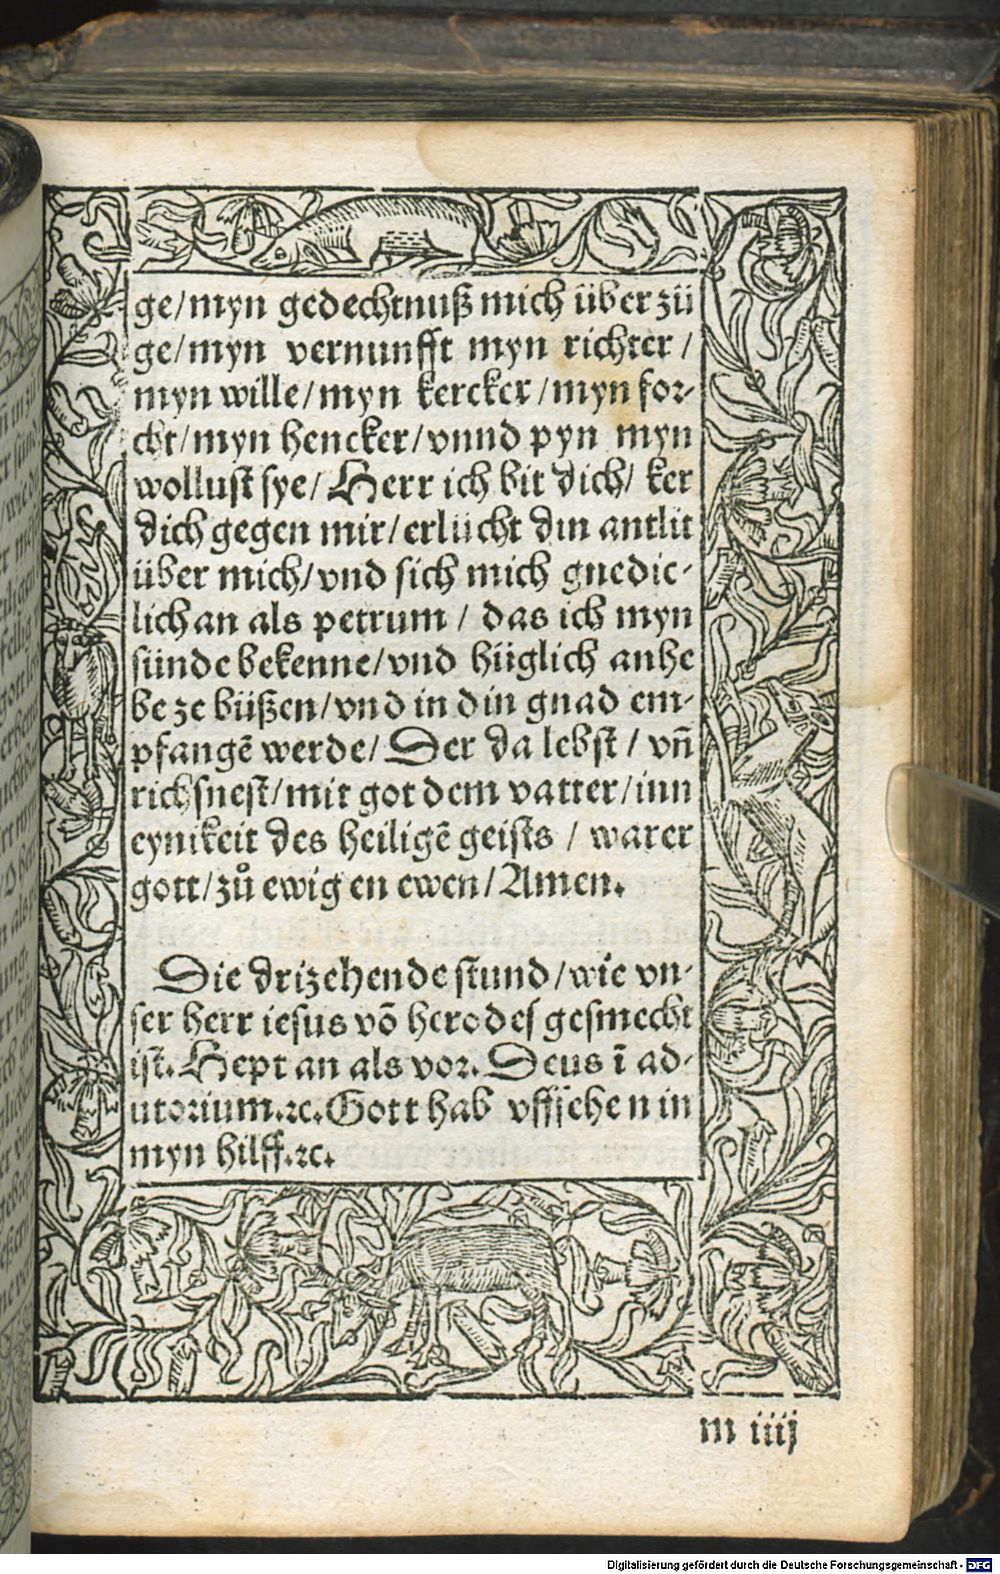 ge/myn gedechtnuß mich über zü
ge/myn vernunfft myn richter /
myn wille/myn kercker /myn for-
cht/myn hencker/vnnd pyn myn
wollust sye/ Herr ich bit dich/ ker
dich gegen mir/erlücht din antlit
über mich/vnd sich mich gnedic-
lich an als petrum / das ich myn
sünde bekenne/vnd hüglich anhe
be ze büßen/vnd in din gnad em-
pfangē werde/ Der da lebst / vn̄
richsnest/mit got dem vatter/inn
eynikeit des heiligē geists / warer
gott/zů ewig en ewen/Amen.
Die drizehende stund/wie vn-
ser herr iesus vō herodes gesmecht
ist. Hept an als vor. Deus ī ad-
utorium.⁊c. Gott hab vffsehen in
myn hilff.⁊c.
m iiij
Digitalisierung gefördert durch die Deutsche Forschungsgemeinschaft - DFG